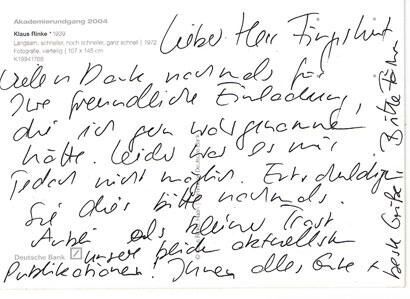 Akademierundgang 2004
Klaus Rinke *1939
Langsam, schneller, noch schneller, ganz schnell | 1972
Fotografie, vierteilig | 107 x 145 cm
K19941768
Lieber Herr
Vielen Dank nochmals für
Ihre freundliche Einladung,
die ich gern wahrgenommen
hätte. Leider war es mir
jedoch nicht möglich. Entschuldigen
Sie dies bitte nochmals.
Anbei als kleiner Trost
unsere beiden aktuellsten
Publikationen! Ihnen alles Gute +
beste Grüße Britta
Deutsche Bank